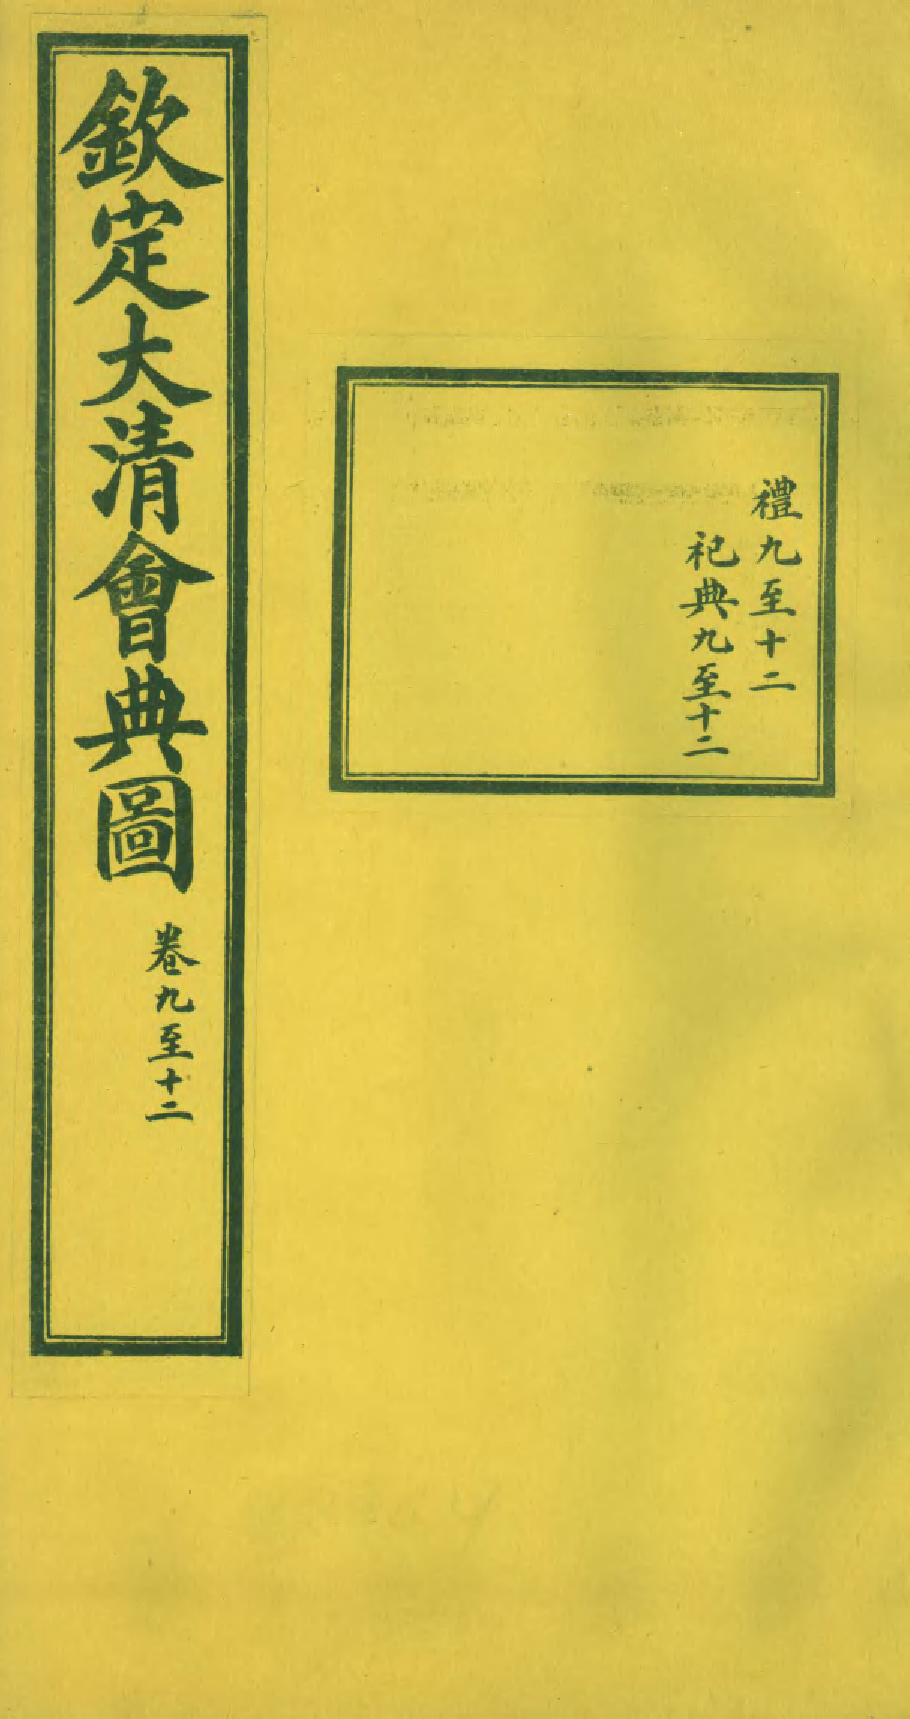 欽定大清會典圖
卷九至十二
禮九至十二
祀典九至十二